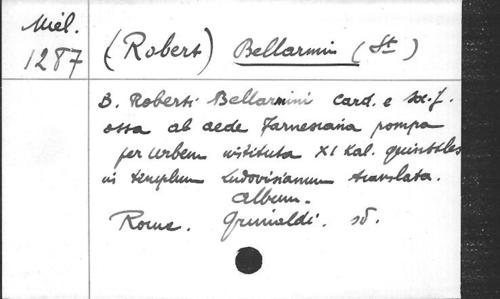 Miél.
1287
(Robert) Bellarmin (St)
B. Roberti Bellarmini Card. e soc. J.
ossa ab aede Farnesiana pompa
per urbem instituta XI Kal. quintiles
in templum Ludovisianum translata.
Album.
Rome. Grimaldi. sd.